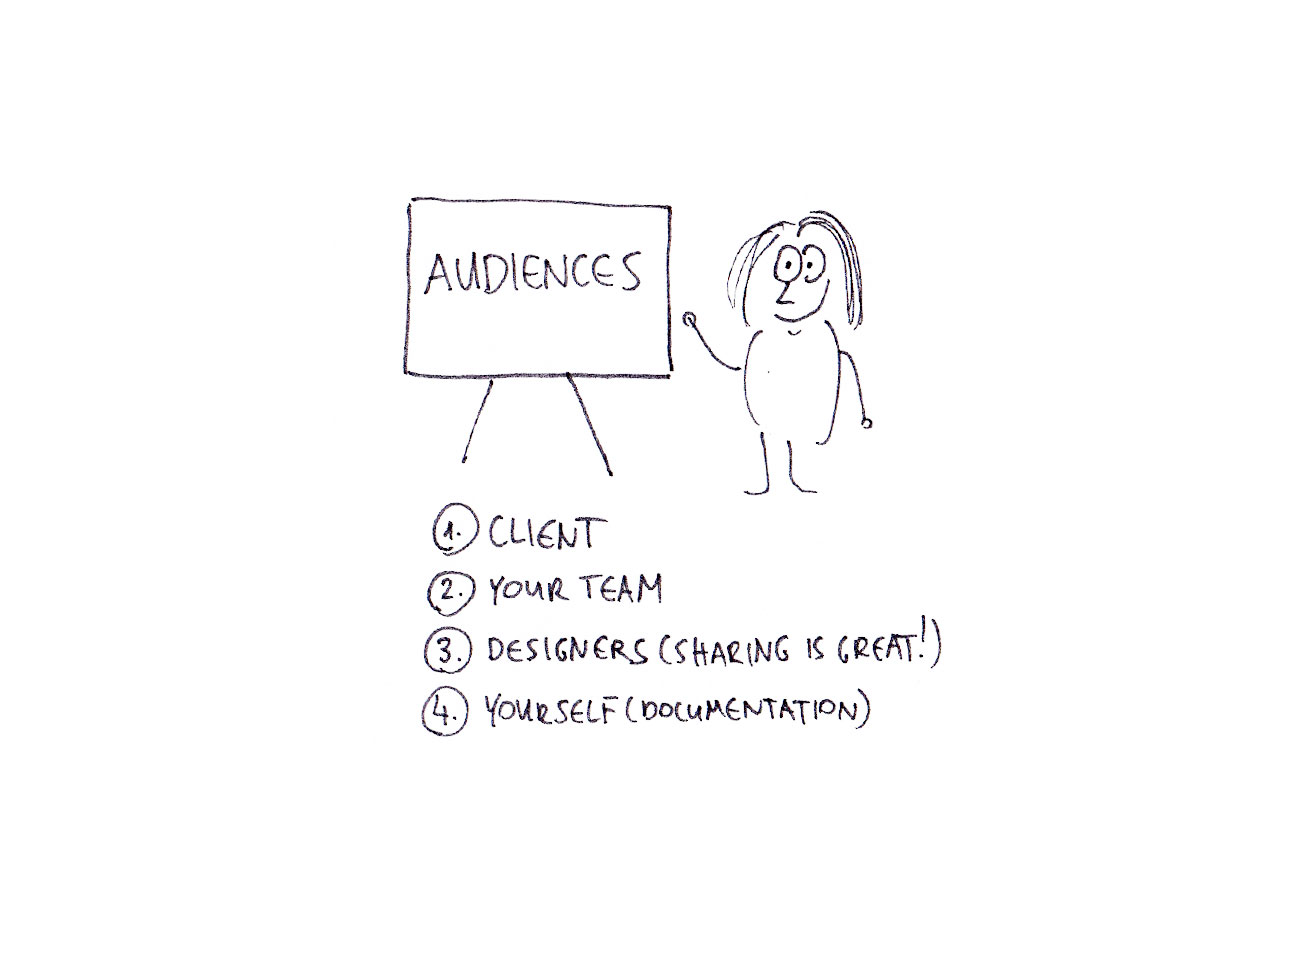 AUDIENCES
1. CLIENT
2. YOUR TEAM
3. DESIGNERS (SHARING IS GREAT!)
4. YOURSELF (DOCUMENTATION)